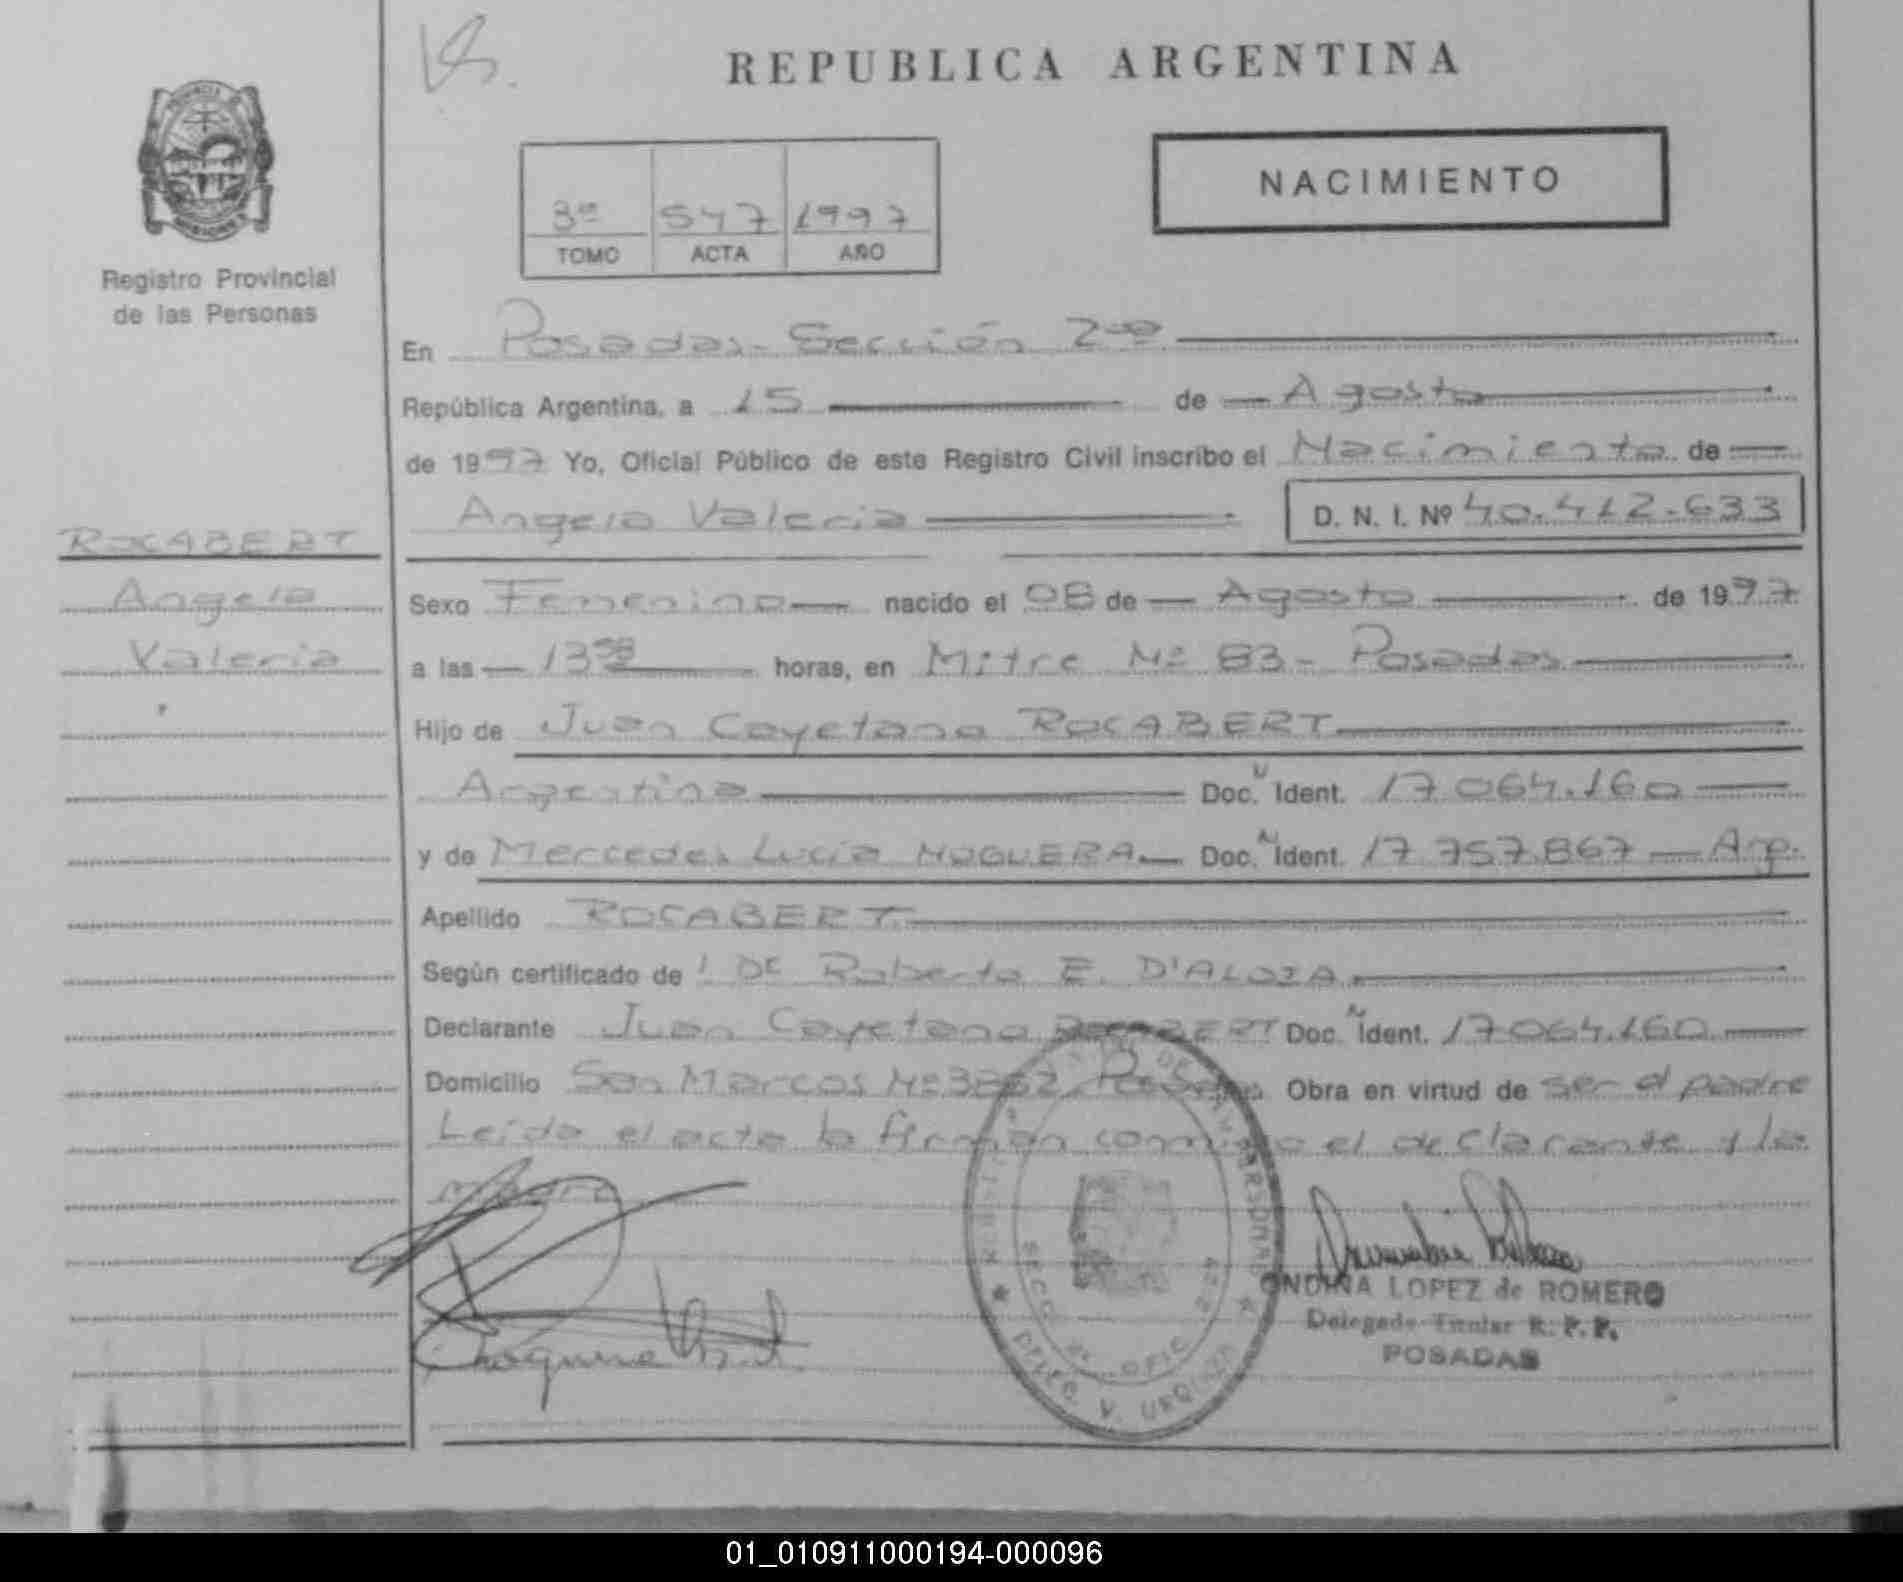 REPUBLICA ARGENTINA
NACIMIENTO
3º 547 1997
TOMO ACTA AÑO
Registro Provincial
de las Personas
En Posadas - Sección 2da
República Argentina, a 15 de Agosto
de 1997 Yo, Oficial Público de este Registro Civil inscribo el Nacimiento de
Angela Valeria D. N. I. Nº 40.412.633
ROCABERT
Angela
Valeria
Sexo Femenino nacido el 08 de Agosto de 1997
a las 13 horas, en Mitre Nº 83 - Posadas
Hijo de Juan Cayetano ROCABERT
Argentino Doc. N Ident. 17.064.160
y de Mercedes Lucía NOGUERA Doc. N Ident. 17.757.867 Arg.
Apellido ROCABERT
Según certificado de Dr Roberto E. D'ALOIA
Declarante Juan Cayetano ROCABERT Doc. N Ident. 17.064.160
Domicilio San Marcos Nº 3862 Posadas Obra en virtud de ser el padre
Leída el acta la firman conmigo el declarante y la
madre
PERSONAS
SECC. 2ª OFIC.
DELEG. V. URQUIZA
ONDINA LOPEZ de ROMERO
Delegado Titular R. P. P.
POSADAS
01_010911000194-000096